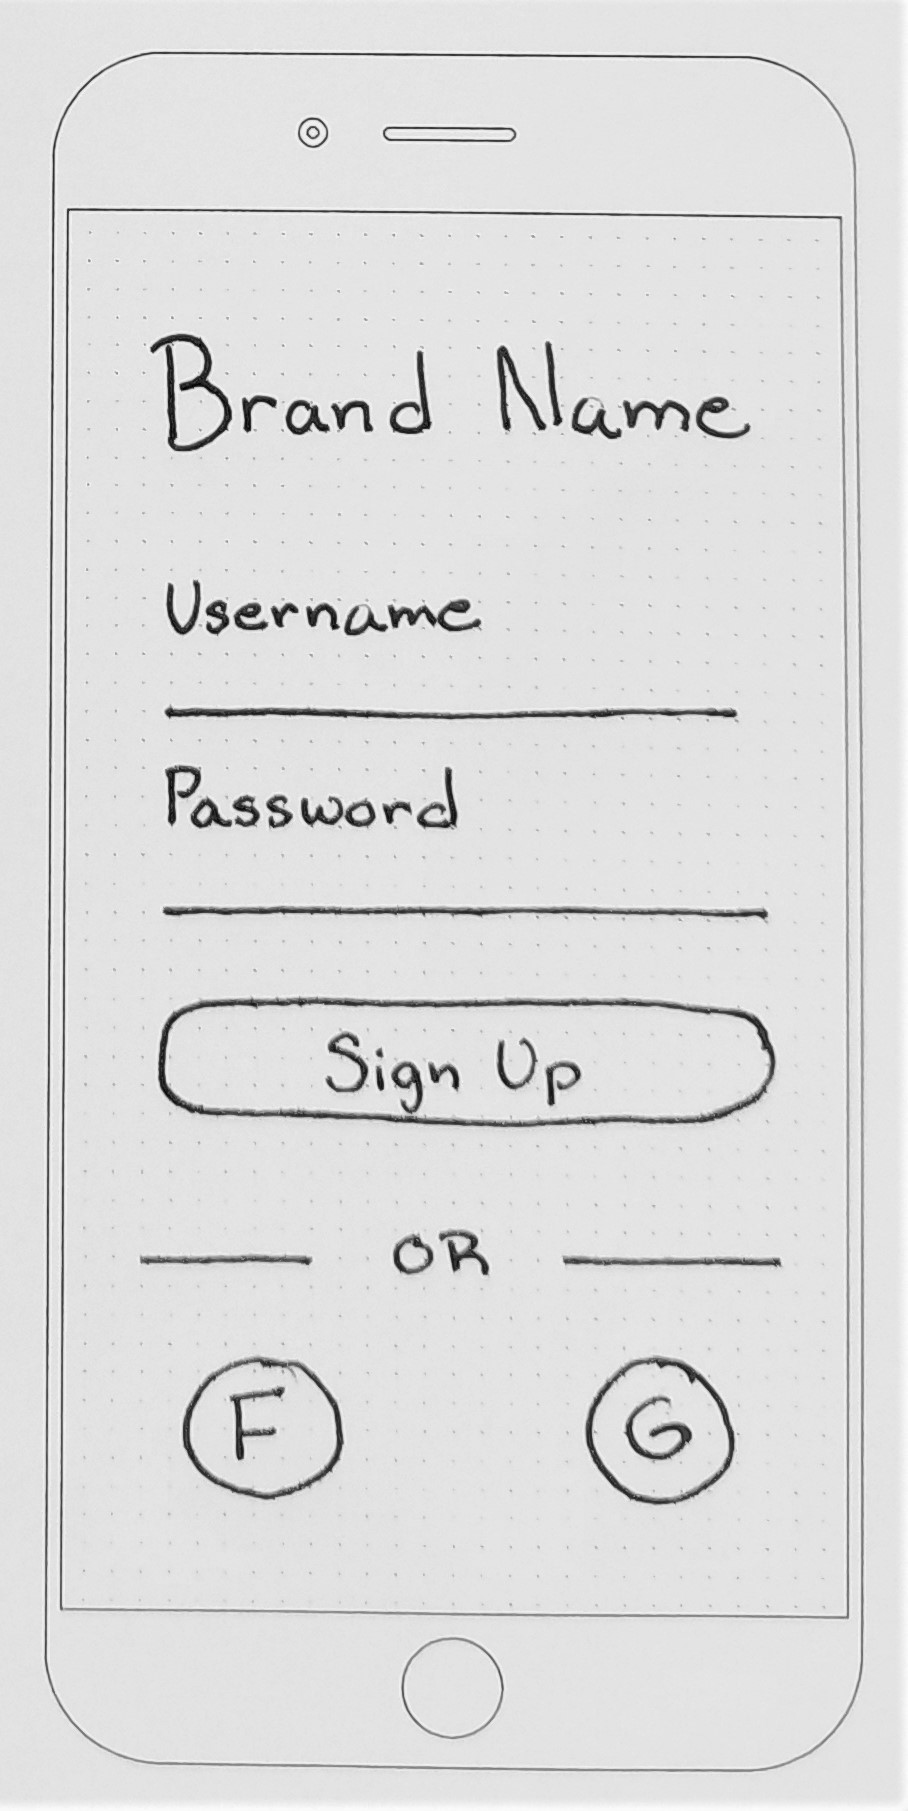 Brand Name
Username
Password
Sign Up
OR
F
G